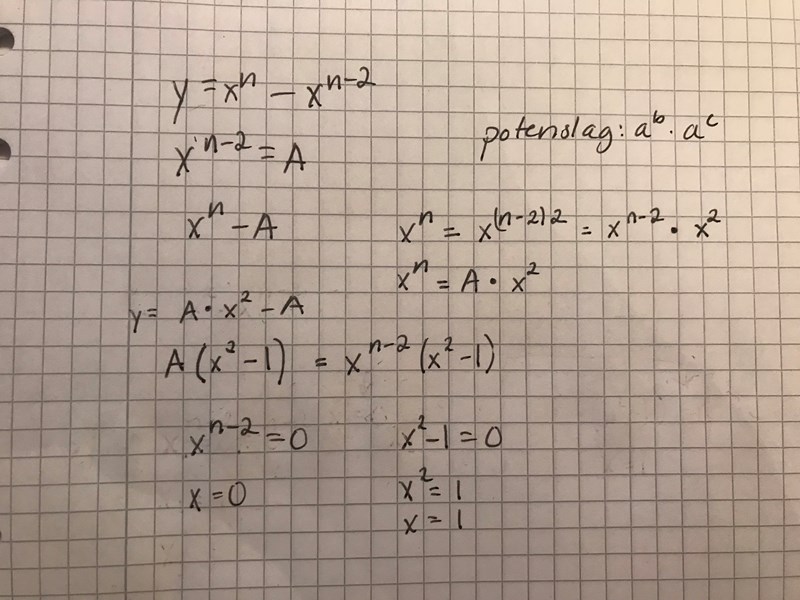 y = xⁿ − xⁿ⁻²
potenslag: aᵇ · aᶜ
xⁿ⁻² = A
xⁿ − A
xⁿ = x⁽ⁿ⁻²⁾² = xⁿ⁻² · x²
xⁿ = A · x²
y = A · x² − A
A (x² − 1) = xⁿ⁻² (x² − 1)
xⁿ⁻² = 0
x² − 1 = 0
x = 0
x² = 1
x = 1